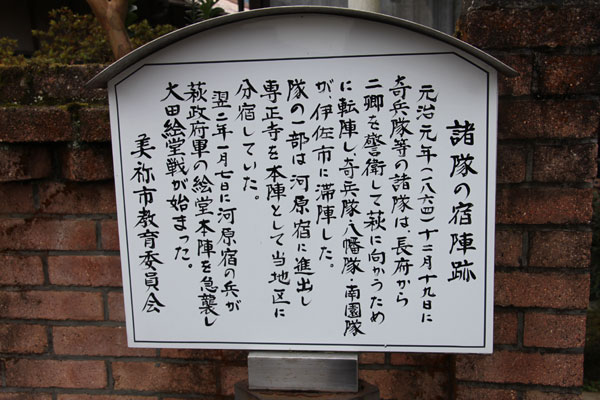 諸隊の宿陣跡
元治元年(一八六四)十二月十九日に
奇兵隊等の諸隊は、長府から
二卿を警衛して萩に向かうため
に転陣し、奇兵隊・八幡隊・南園隊
が、伊佐市に滞陣した。
隊の一部は河原宿に進出し
専正寺を本陣として当地区に
分宿していた。
翌二年一月七日に河原宿の兵が
萩政府軍の絵堂本陣を急襲し
大田絵堂戦が始まった。
美祢市教育委員会